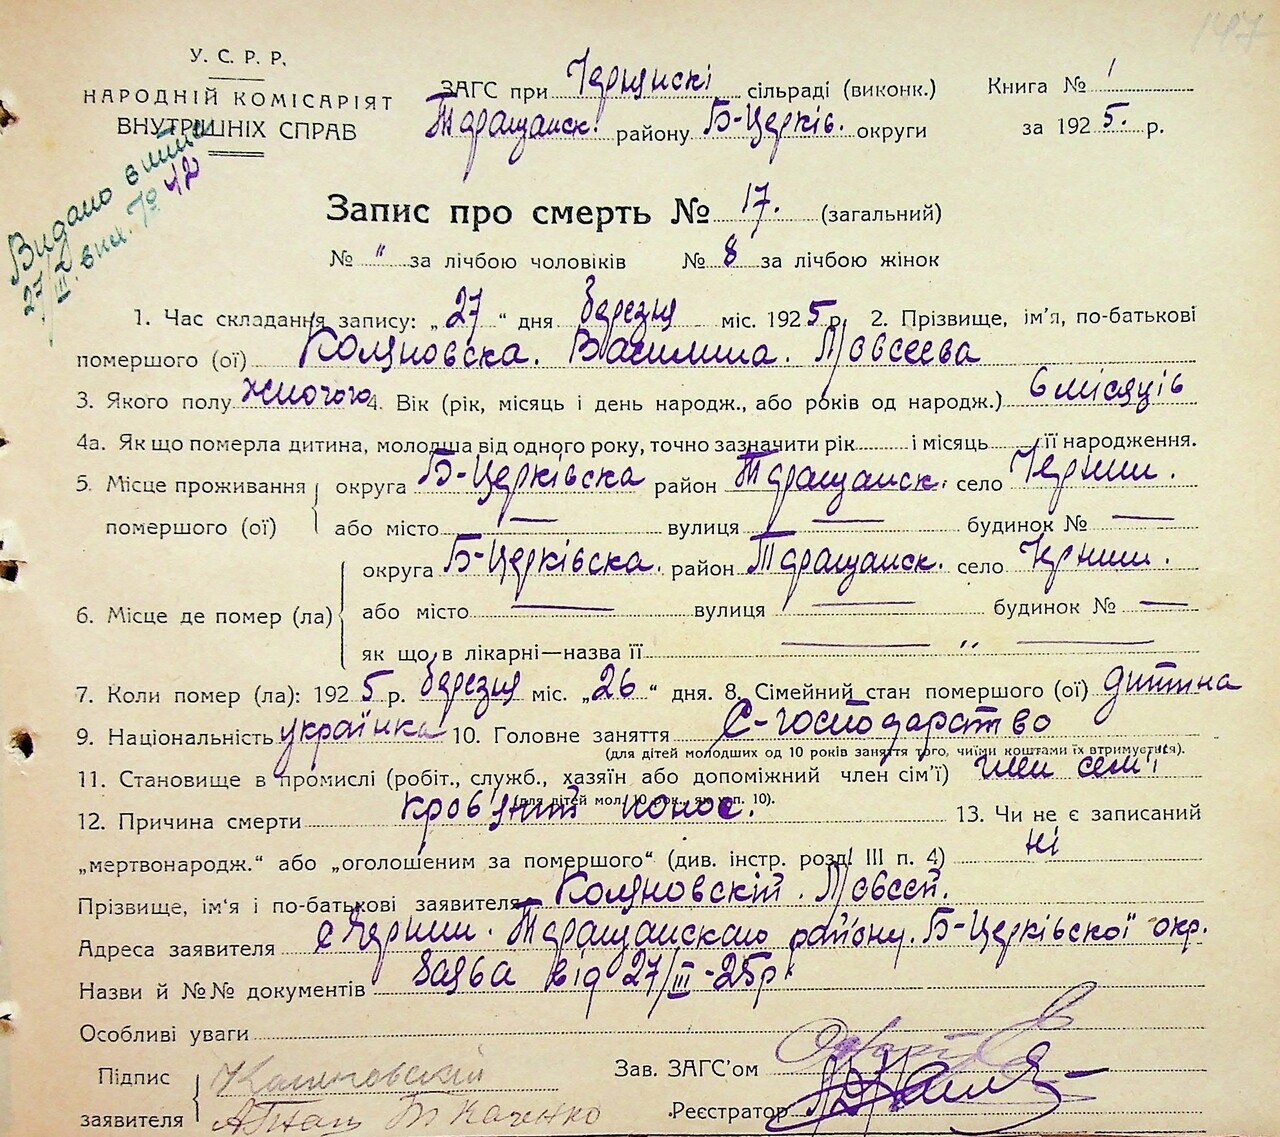 147
У. С. Р. Р.
НАРОДНІЙ КОМІСАРІЯТ
ВНУТРІШНІХ СПРАВ
ЗАГС при Чернинскі сільраді (виконк.)
Таращанск. району Б-Церків. округи
Книга № 1
за 1925. р.
Видано витяг
27/III вих. № 42
Запис про смерть № 17. (загальний)
№ " за лічбою чоловіків № 8 за лічбою жінок
1. Час складання запису: „27“ дня березня міс. 1925 р. 2. Прізвище, ім’я, по-батькові
помершого (ої) Коляновска. Василина. Мовсеева
3. Якого полу жіночого 4. Вік (рік, місяць і день народж., або років од народж.) 6 місяців
4а. Як що померла дитина, молодша від одного року, точно зазначити рік і місяць її народження.
5. Місце проживання округа Б-Церківска район Таращанск. село Чернин.
помершого (ої) або місто — вулиця — будинок № —
округа Б-Церківска. район Таращанск. село Чернин.
6. Місце де помер (ла) або місто — вулиця — будинок № —
як що в лікарні—назва її — „ —
7. Коли помер (ла): 1925 р. березня міс. „26“ дня. 8. Сімейний стан помершого (ої) дитина
9. Національність українка 10. Головне заняття С-господарство
(для дітей молодших од 10 років заняття того, чиїми коштами їх втримується).
11. Становище в промислі (робіт., служб., хазяїн або допоміжний член сім’ї) член сем'ї
(для дітей мол. 10 рок., як у п. 10).
12. Причина смерти кров'яний понос. 13. Чи не є записаний
„мертвонародж.“ або „оголошеним за помершого“ (див. інстр. розд. III п. 4) ні
Прізвище, ім’я і по-батькові заявителя Коляновскій. Мовсей.
Адреса заявителя с Чернин. Таращанскаго району. Б-Церківскої окр.
Назви й №№ документів Заява від 27/III-25р.
Особливі уваги
Підпис Зав. ЗАГС’ом
заявителя Ткаченко Реєстратор